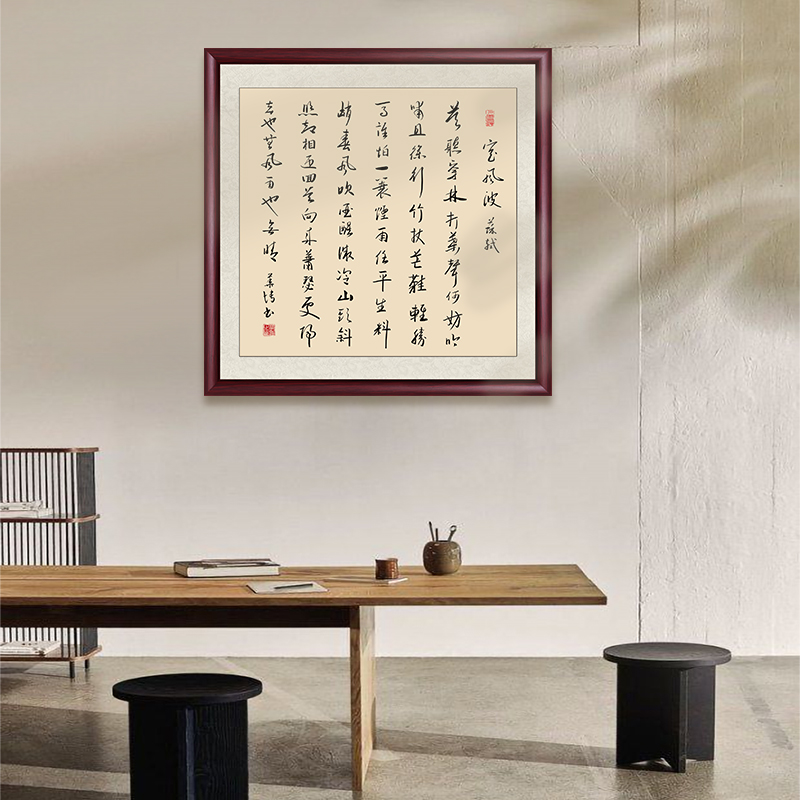 定風波 蘇軾
莫聽穿林打葉聲何妨吟
嘯且徐行竹杖芒鞋輕勝
馬誰怕一蓑煙雨任平生料
峭春風吹酒醒微冷山頭斜
照却相迎回首向來蕭瑟處歸
去也無風雨也無晴 書